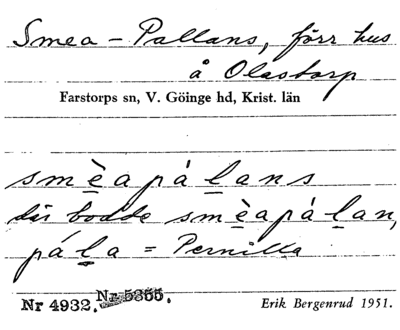 Smea-Pallans, förr hus
å Olastorp
Farstorps sn, V. Göinge hd, Krist. län
smèapálans
där bodde smèapálan,
pála = Pernilla
Nr 4932. Nr 5355.
Erik Bergenrud 1951.